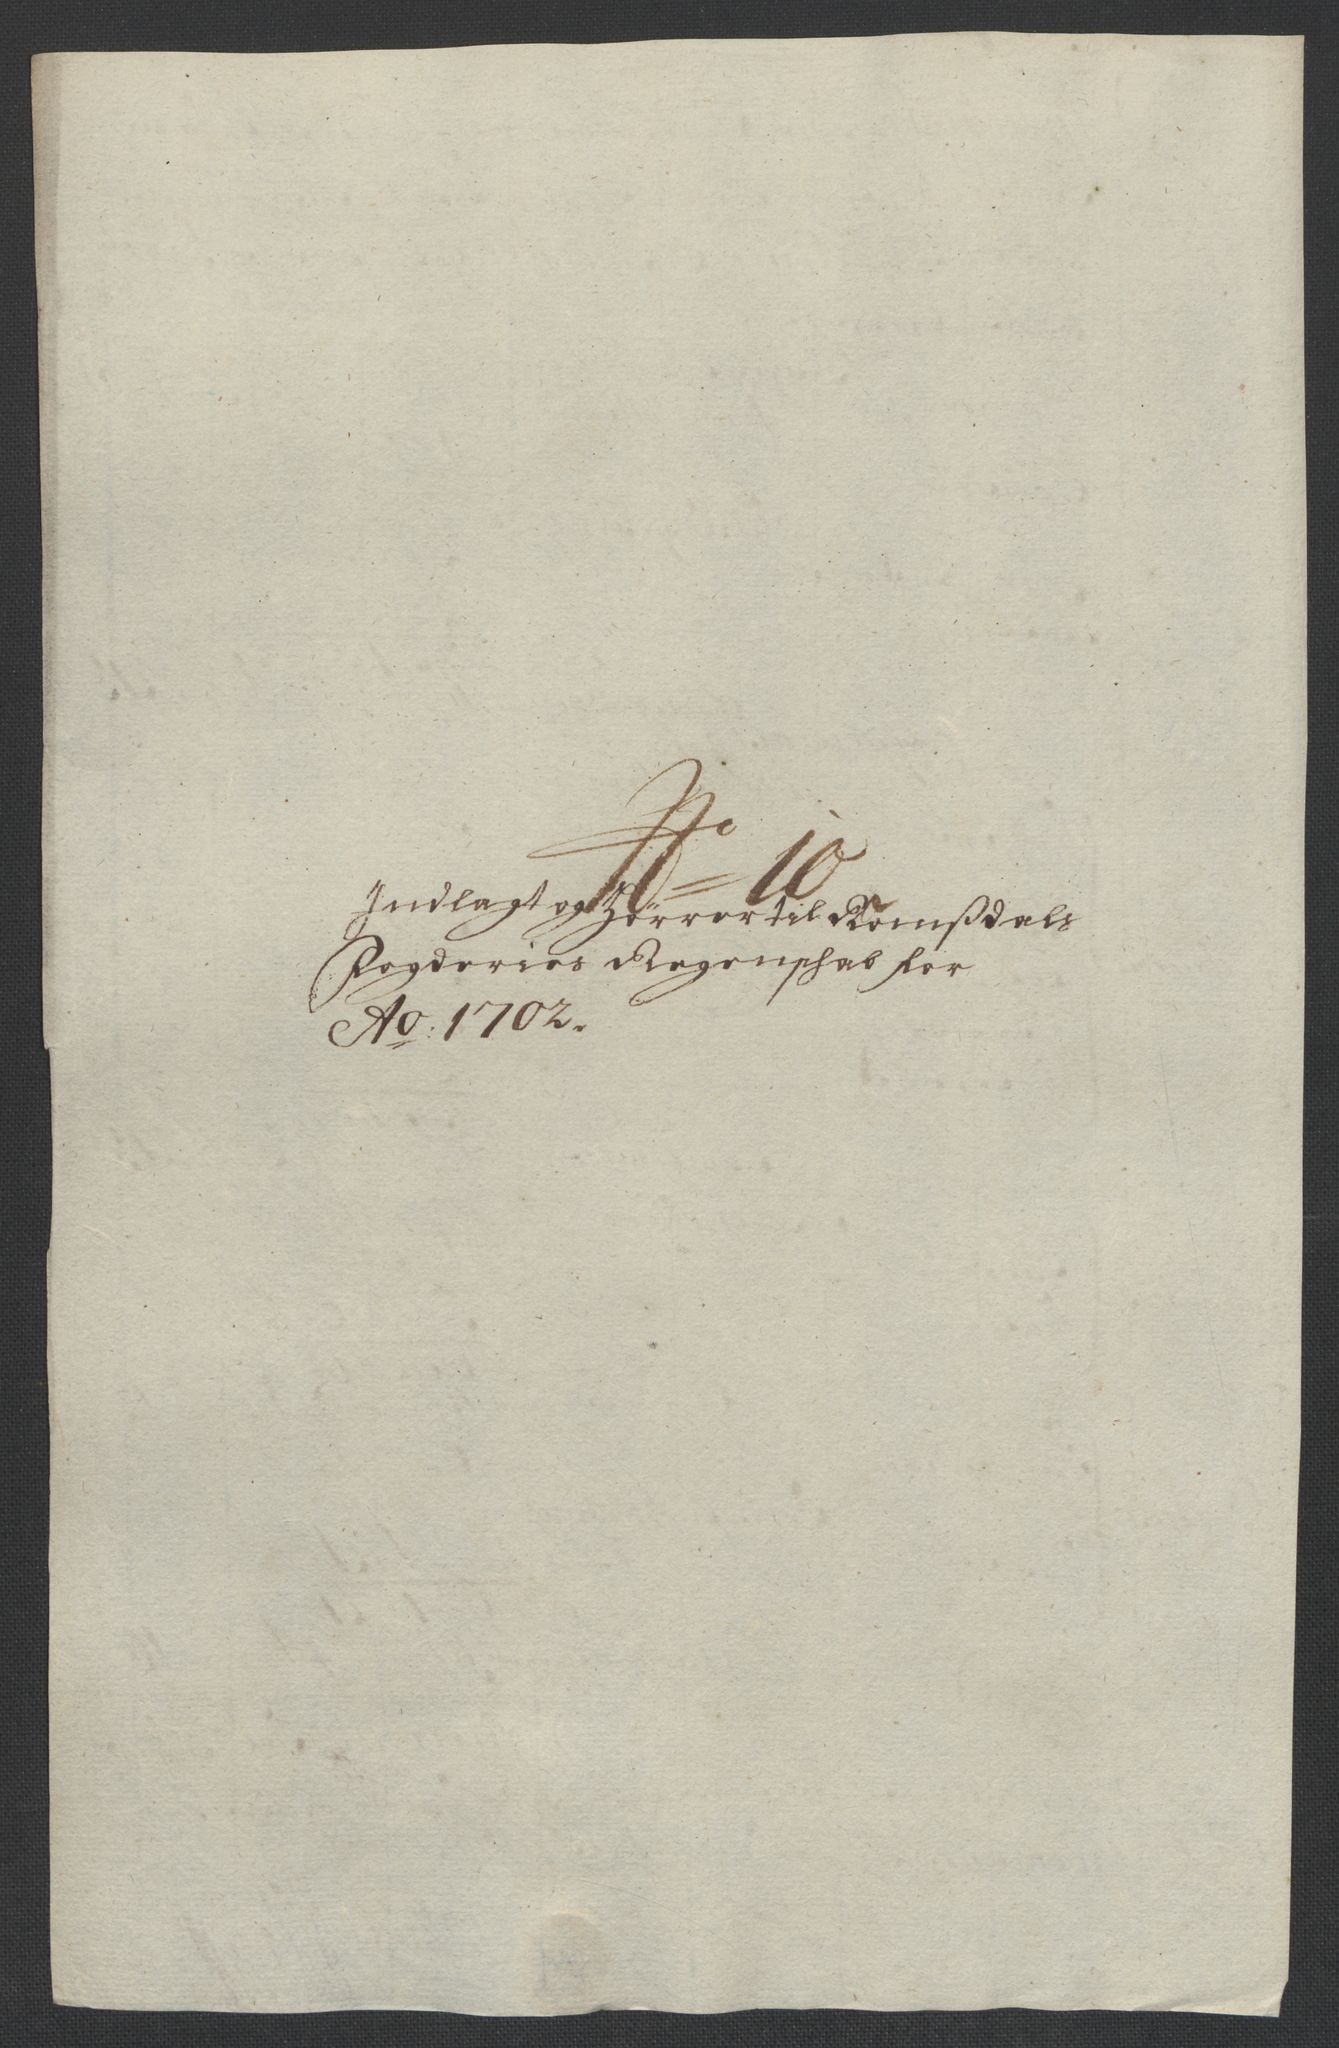 No 10
Indlagt og hörrer til Romßdals
Fogderies Regenschab for
Ao: 1702.